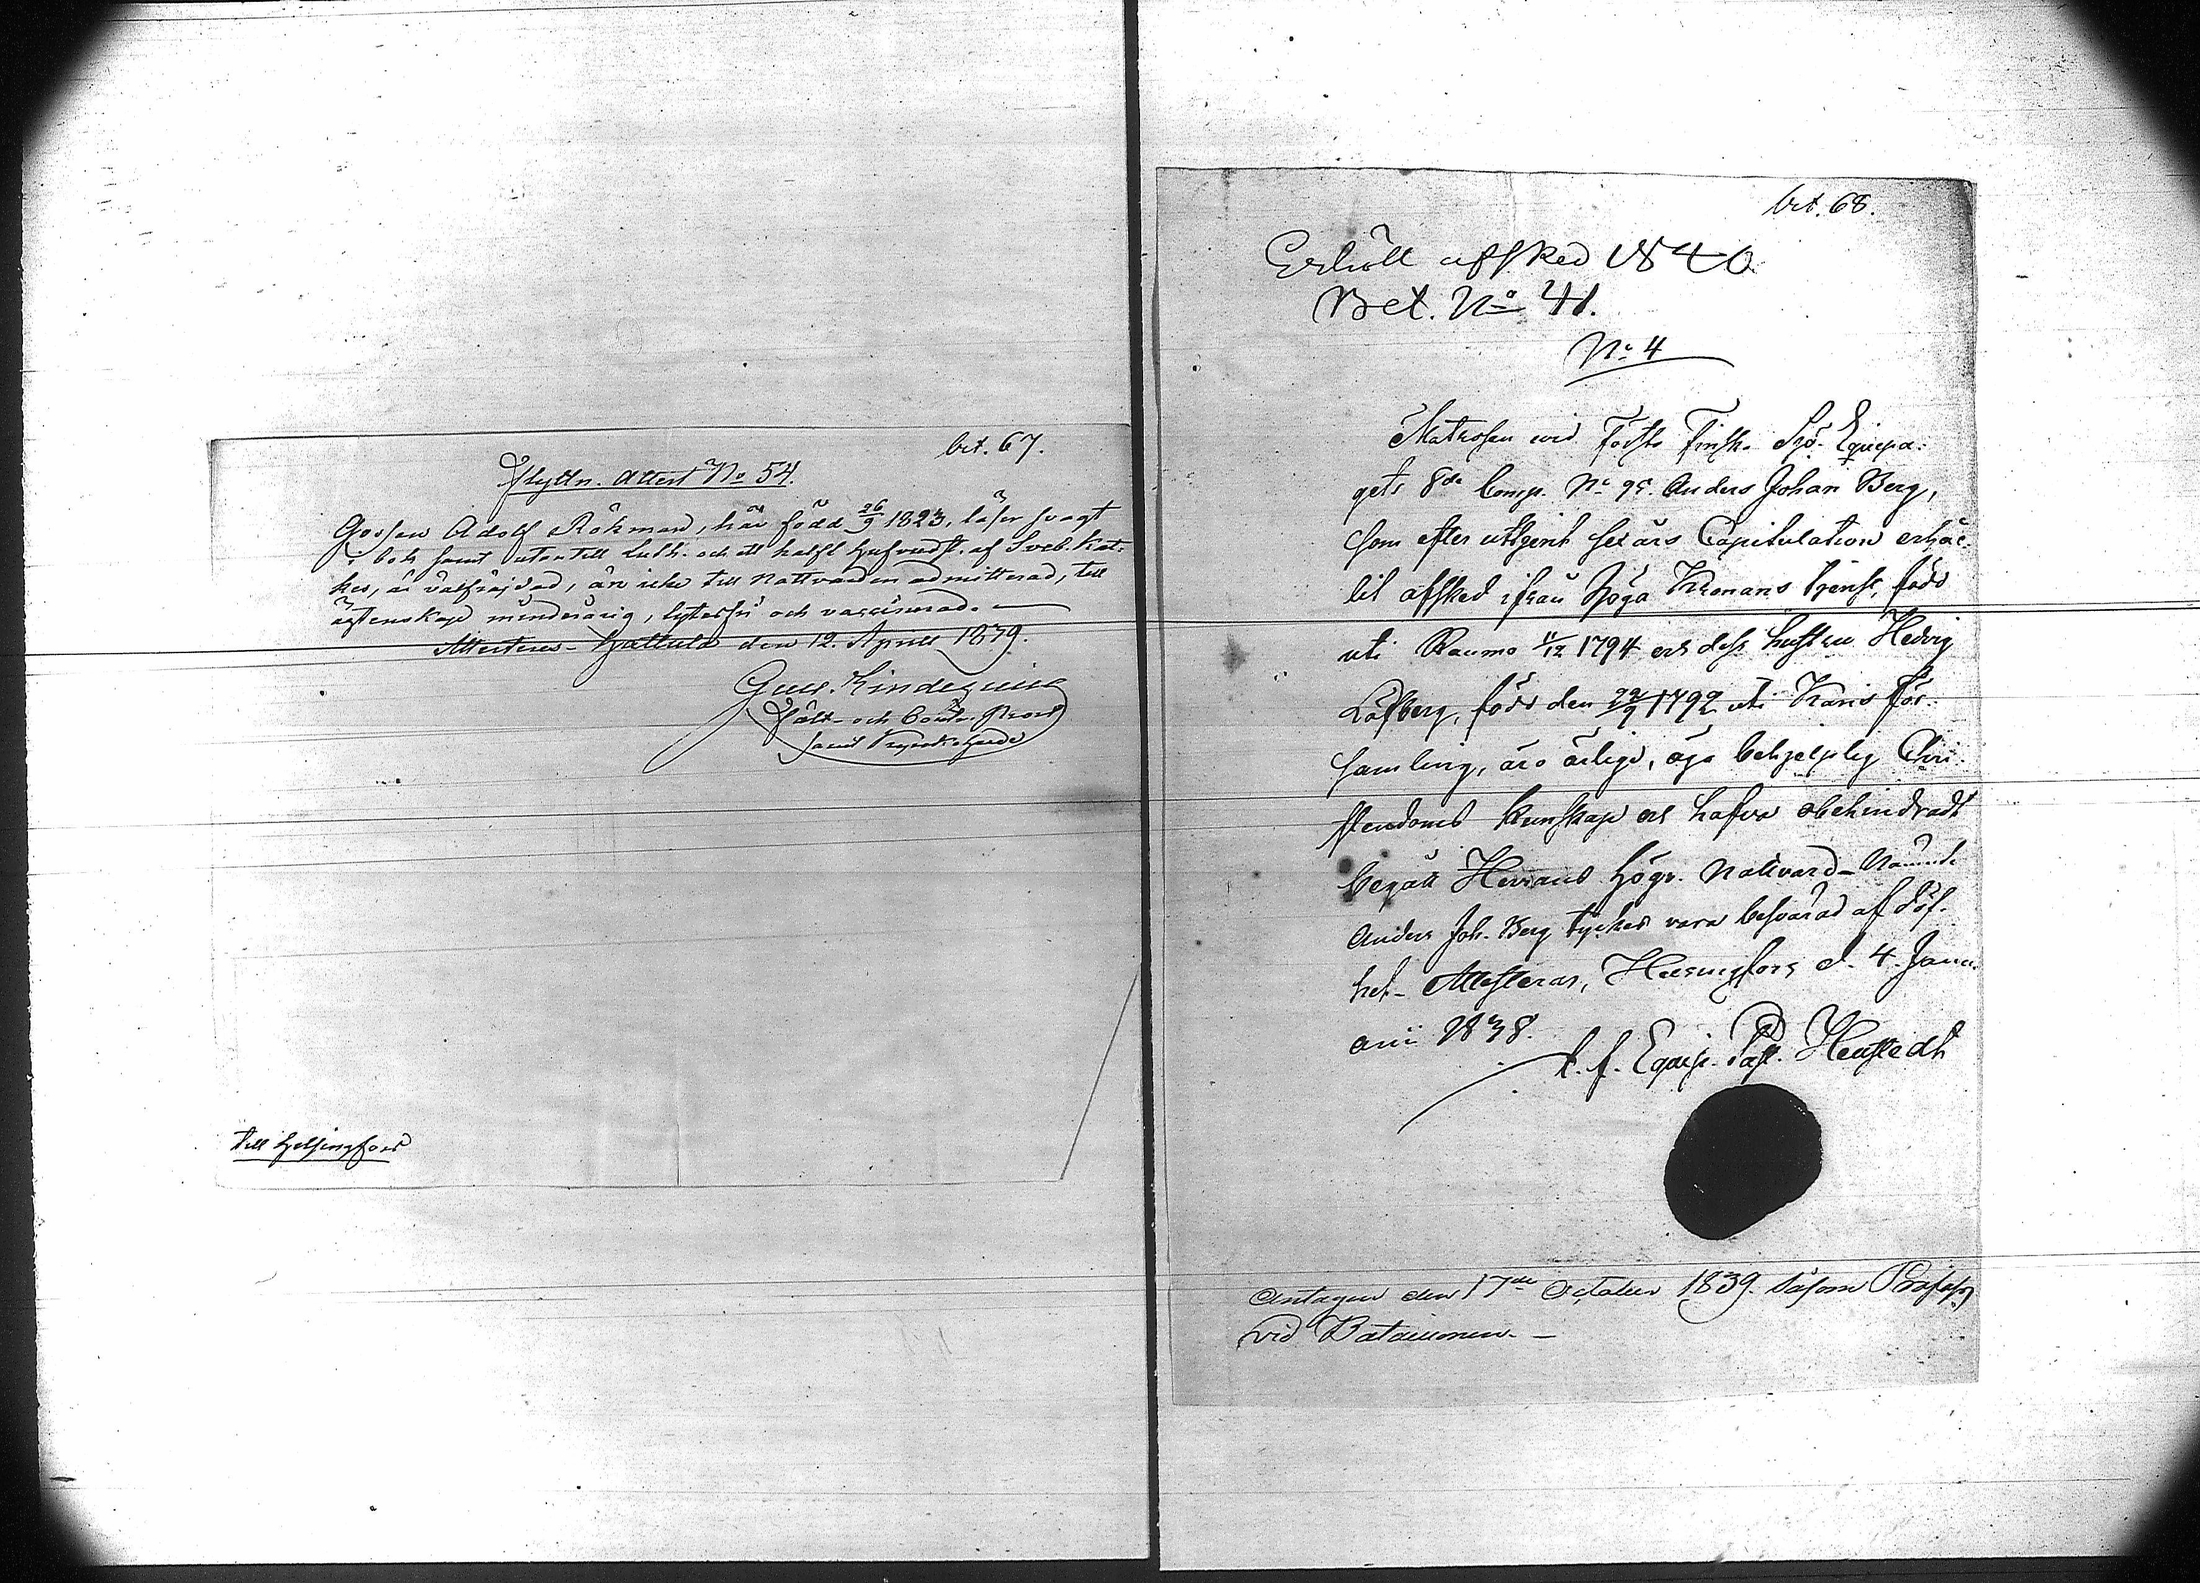 bet. 67.
Flyttn. Attest No 54.
Gossen Adolf Rökman, här född 26/9 1823, läser svagt
i bok samt utantill Luth. och ett halft hufvudst. af Sveb. Kat-
kes, är välfräjdad, än icke till Nattvarden admitterad, till
ägtenskap minderårig, lytesfri och vaccinerad.
Attesteras. Hattula den 12. April 1839.
Gust.
Prost
samt Kyrkoherde
till Helsingfors
bet. 68.
Erhöll afsked 1840
Bet. No 41.
No 4
Matrosen vid Första Finska Sjö-Equipa-
gets 8de Comp. No 95. Anders Johan Berg,
som efter uttjent sex års Capitulation erhål-
lit afsked ifrån Höga Kronans tjenst, född
uti Raumo 4/12 1794 och dess hustru Hedvig
Löfberg, född den 22/9 1792 uti Karis för-
samling, äro ärlige, äga behjelplig Chri-
stendoms kunskap och hafva obehindradt
begått Herrans Högv. Nattvard - Nämnde
Anders Joh. Berg tyckes vara besvärad af döf-
het - Attesteras, Helsingfors d. 4. Janu-
arii 1838.
t. f. Equip. Past. Henstedt
Antagen den 17de October 1839. såsom Profoss
vid Bataillonen. -